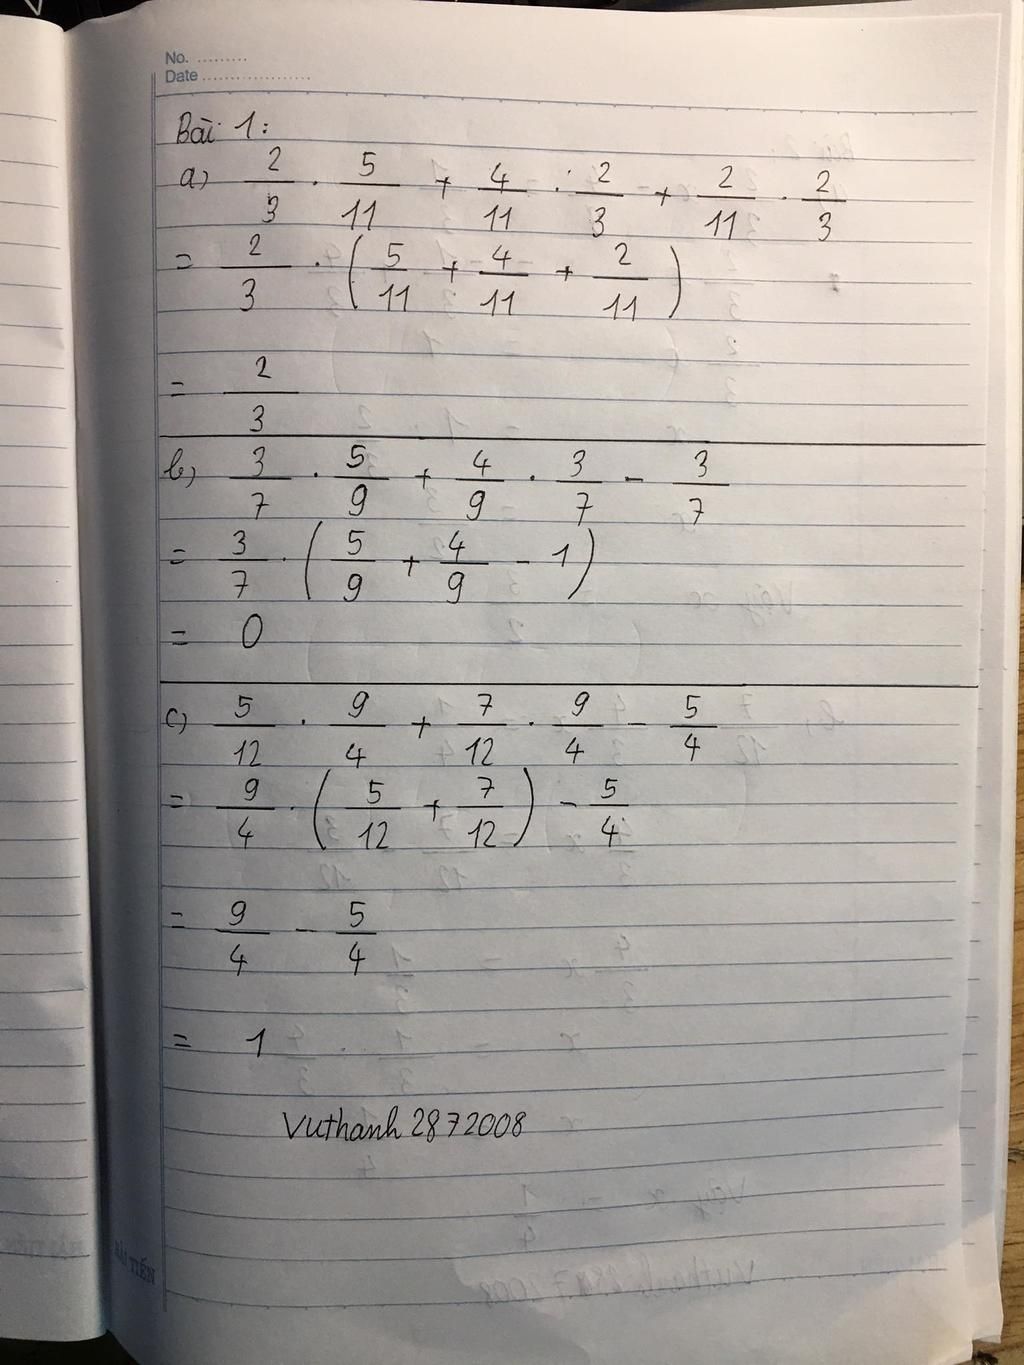 No. ..........
Date ..................
Bài 1:
a) 2/3 . 5/11 + 4/11 . 2/3 + 2/11 . 2/3
= 2/3 . (5/11 + 4/11 + 2/11)
= 2/3
b) 3/7 . 5/9 + 4/9 . 3/7 - 3/7
= 3/7 . (5/9 + 4/9 - 1)
= 0
c) 5/12 . 9/4 + 7/12 . 9/4 - 5/4
= 9/4 . (5/12 + 7/12) - 5/4
= 9/4 - 5/4
= 1
Vuthanh 2872008
HẢI TIẾN